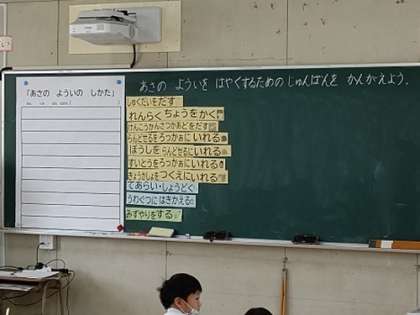 あさの よういを はやくするための じゅんばんを かんがえよう。
「あさの よういの しかた」
しゅくだいをだす
れんらくちょうをかく
けんこうかんさつかあどをだす
らんどせるをろっかあにいれる
ぼうしをらんどせるにいれる
すいとうをろっかあにいれる
きょうかしょをつくえにいれる
てあらい・しょうどく
うわぐつにはきかえる
みずやりをする